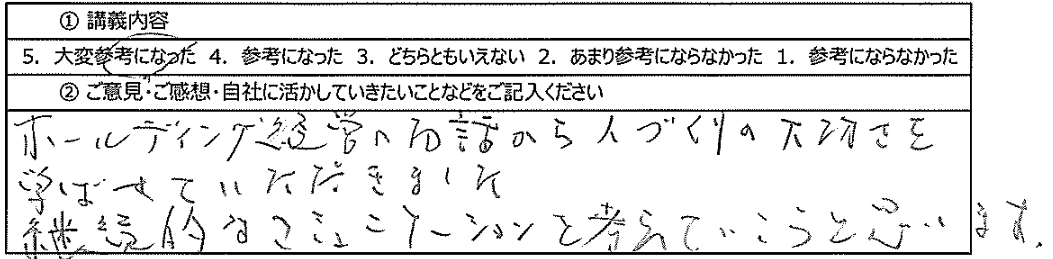 ① 講義内容
5. 大変参考になった 4. 参考になった 3. どちらともいえない 2. あまり参考にならなかった 1. 参考にならなかった
② ご意見・ご感想・自社に活かしていきたいことなどをご記入ください
ホールディング経営のお話から人づくりの大切さを
学ばせていただきました
継続的なコミュニケーションを考えていこうと思います。